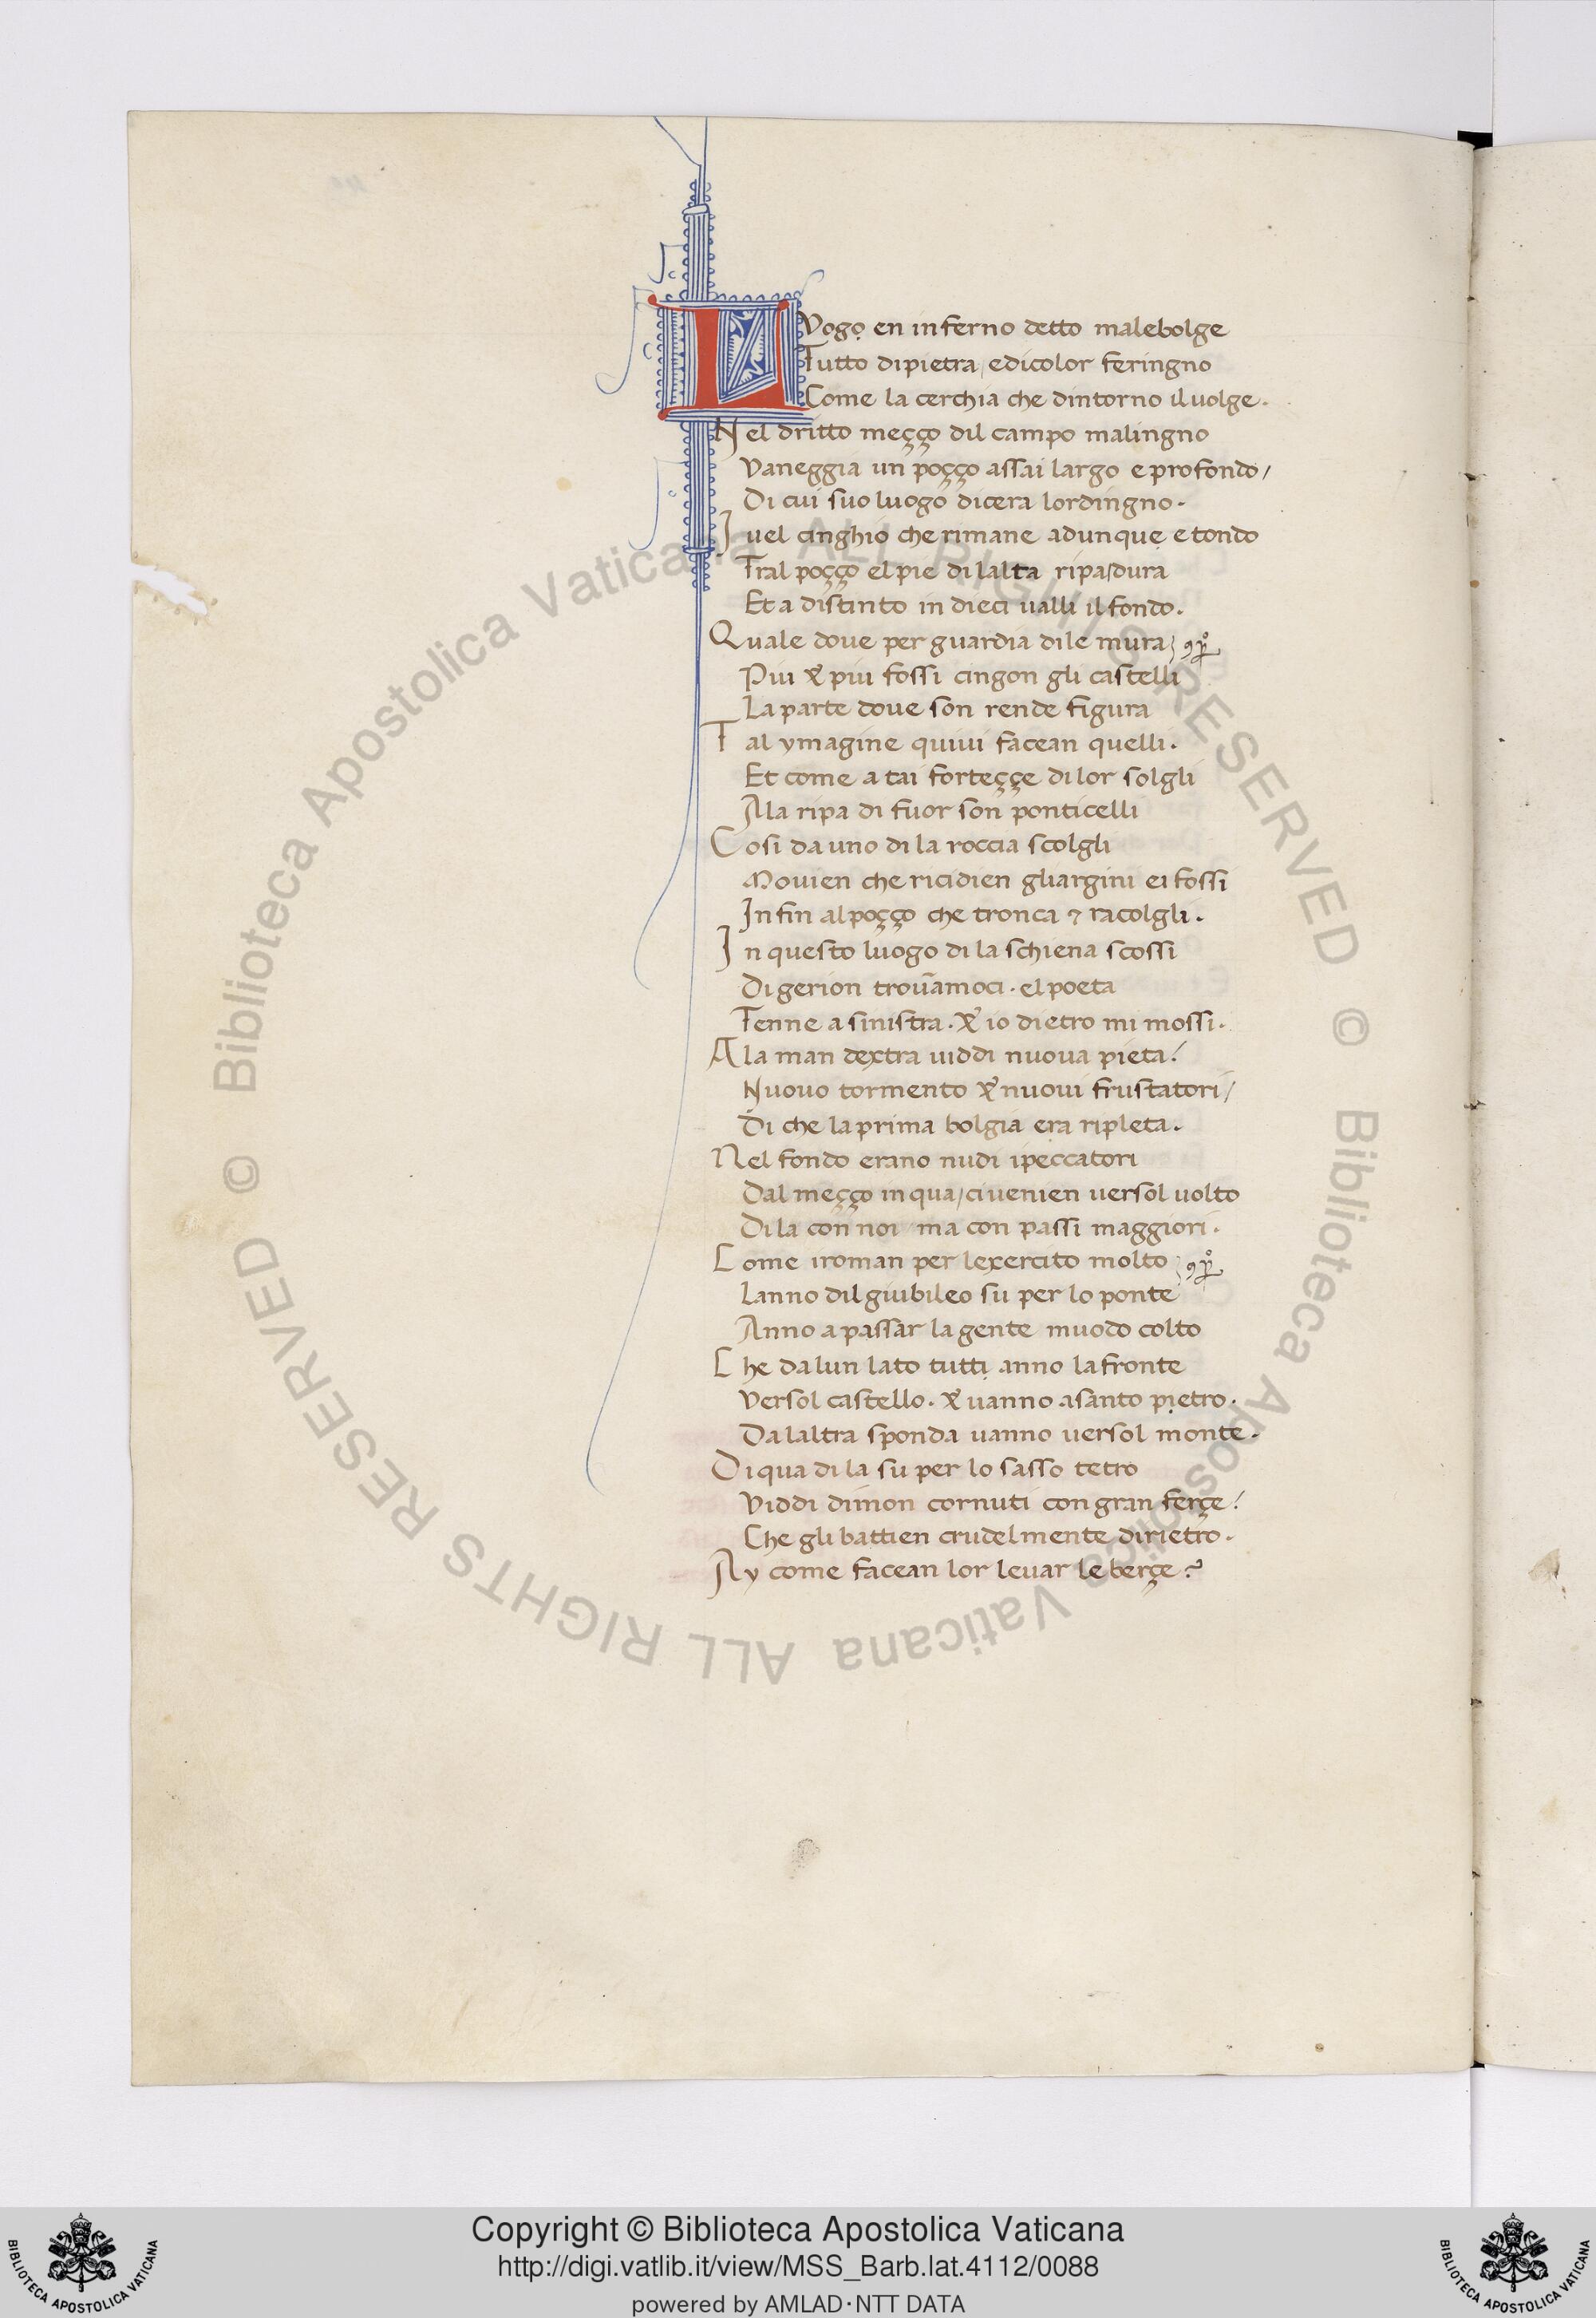 LVogo en inferno detto malebolge
Tutto dipietra, edicolor feringno
Come la cerchia che dintorno iluolge.
Nel dritto meçço dil campo malingno
Vaneggia un poçço assai largo e profondo,
Di cui suo luogo dicera lordingno.
Iuel cinghio che rimane adunque e tondo
Fral poçço el pie di lalta ripa dura
Et a distinto in dieci ualli il fondo.
Quale doue per guardia dile mura
Piu & piu fossi cingon gli castelli
La parte doue son rende figura
Tal ymagine quiui facean quelli.
Et come a tai forteççe di lor solgli
Ala ripa di fuor son ponticelli
Cosi da uno di la roccia scolgli
Mouien che ricidien gliargini ei fossi
In fin al poçço che tronca ⁊ racolgli.
In questo luogo di la schiena scossi
Di gerion trouãmoci. el poeta
Tenne a sinistra. & io dietro mi mossi.
Ala man dextra uiddi nuoua pieta!
Nuouo tormento & nuoui frustatori,
Di che la prima bolgia era ripleta.
Nel fondo erano nudi ipeccatori
Dal meçço in qua, ci uenien uersol uolto
Di la con noi ma con passi maggiori.
Come iroman per lexercito molto
Lanno dil giubileo su per lo ponte
Anno a passar la gente muodo colto
Che dalun lato tutti anno la fronte
Versol castello. & uanno asanto pietro.
Dalaltra sponda uanno uersol monte.
Di qua di la su per lo sasso tetro
Viddi dimon cornuti con gran ferçe!
Che gli battien crudelmente dirietro.
Ay come facean lor leuar le berçe?
© Biblioteca Apostolica Vaticana ALL RIGHTS RESERVED © Biblioteca Apostolica Vaticana ALL RIGHTS RESERVED
Copyright © Biblioteca Apostolica Vaticana
http://digi.vatlib.it/view/MSS_Barb.lat.4112/0088
powered by AMLAD·NTT DATA
BIBLIOTECA APOSTOLICA VATICANA
BIBLIOTECA APOSTOLICA VATICANA